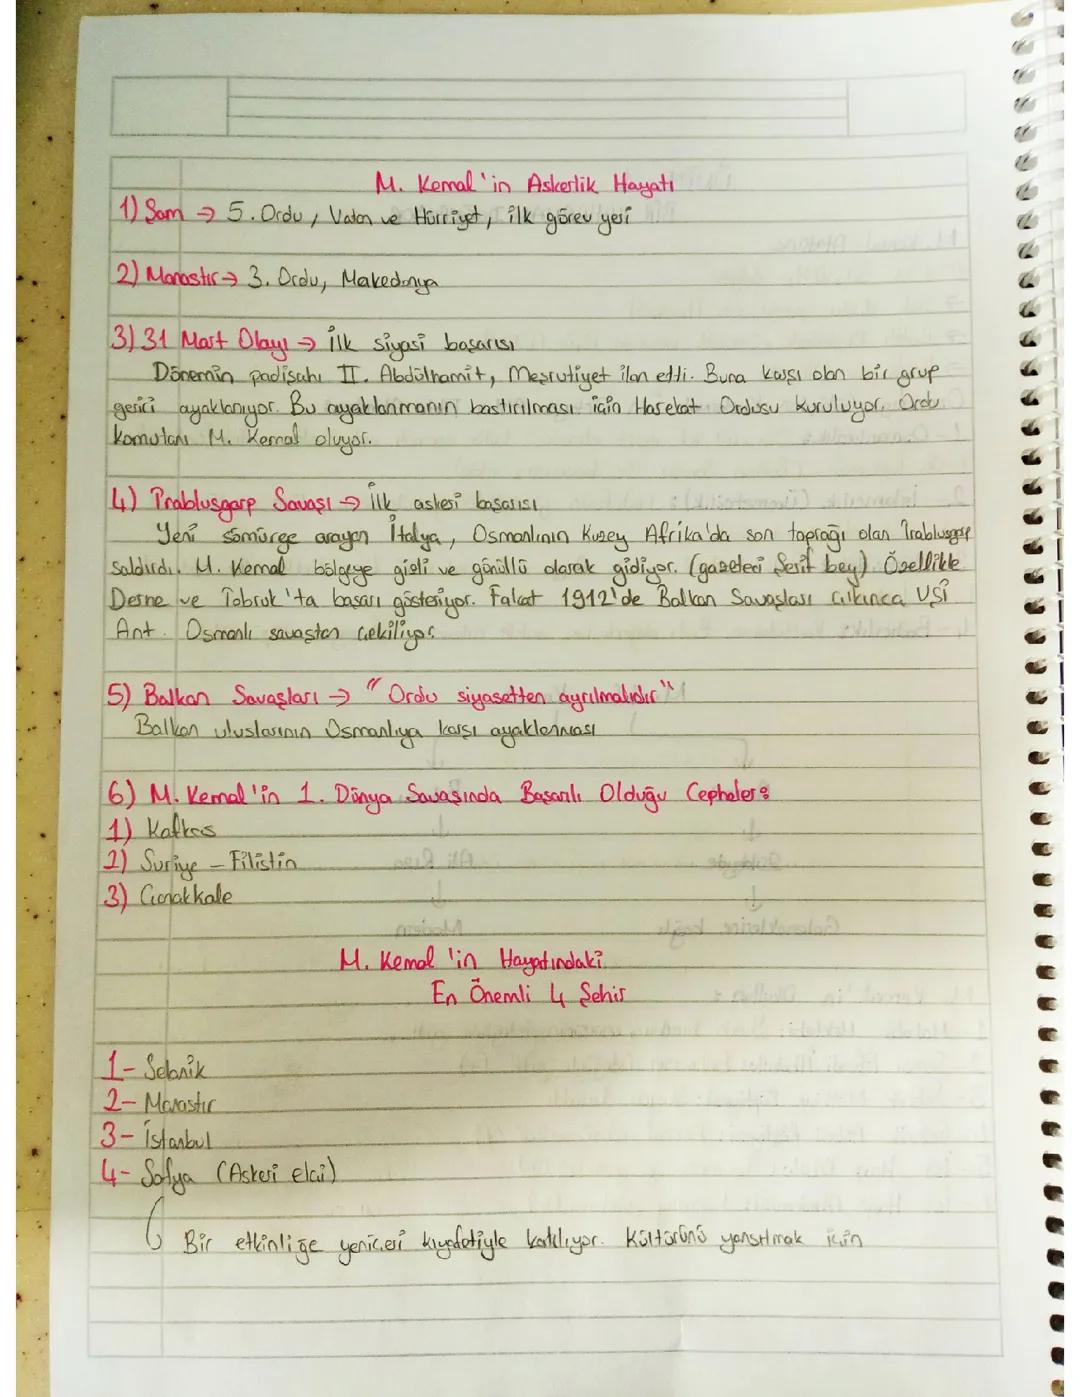 M. Kemal'in Askerlik Hayatı
1) Şam → 5. Ordu, Vatan ve Hürriyet, ilk görev yeri
2) Manastır → 3. Ordu, Makedonya
3) 31 Mart Olayı → İlk siyasi başarısı
Dönemin padişahı II. Abdülhamit, Meşrutiyet ilan etti. Buna karşı olan bir grup
gerici ayaklanıyor. Bu ayaklanmanın bastırılması için Harekat Ordusu kuruluyor. Ordu
komutanı M. Kemal oluyor.
4) Trablusgarp Savaşı → İlk askeri başarısı
Yeni sömürge arayan İtalya, Osmanlının Kuzey Afrika'da son toprağı olan Trablusgarp
saldırdı. M. Kemal bölgeye gizli ve gönüllü olarak gidiyor. (gazeteci Şerif bey). Özellikle
Derne ve Tobruk'ta başarı gösteriyor. Fakat 1912'de Balkan Savaşları çıkınca UŞİ
Ant. Osmanlı savaştan çekiliyor.
5) Balkan Savaşları → "Ordu siyasetten ayrılmalıdır"
Balkan uluslarının Osmanlıya karşı ayaklanması
6) M. Kemal'in 1. Dünya Savaşında Başarılı Olduğu Cepheler:
1) Kafkas
2) Suriye - Filistin
3) Çanakkale
M. Kemal'in Hayatındaki
En Önemli 4 Şehir
1- Selanik
2- Manastır
3- İstanbul
4- Sofya (Askeri elçi)
Bir etkinliğe yeniçeri kıyafetiyle katılıyor. Kültürünü yansıtmak için